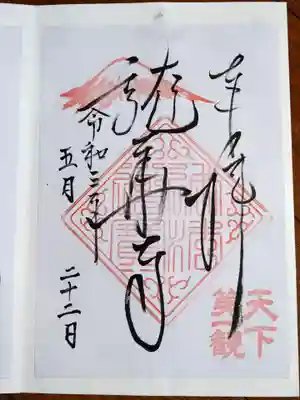 奉拝
龍華寺
令和三年
五月 二十二日
天下
第一観